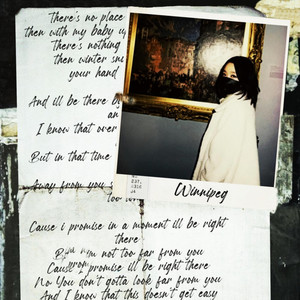 there's no place
then with my baby u
there's nothing
then winter sn
your hand
And ill be there by
an
I know that over
But in that time
Away from you
too
Winnipeg
Cause i promise in a moment ill be right
there
not too far from you
Cause i promise ill be right there
No You don't gotta look far from you
And I know that this doesn't get easy